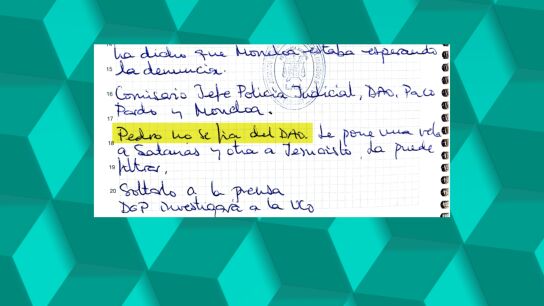 ha dicho que Moncloa estaba esperando
15
la denuncia.
16
Comisario Jefe Policía Judicial, DAO, Paco
Pardo y Moncloa.
17
Pedro no se fía del DAO. Le pone una vela
18
a Satanás y otra a Jesucristo, la puede
19
filtrar,
20 Soltarlo a la prensa
DGP investigará a la UCO